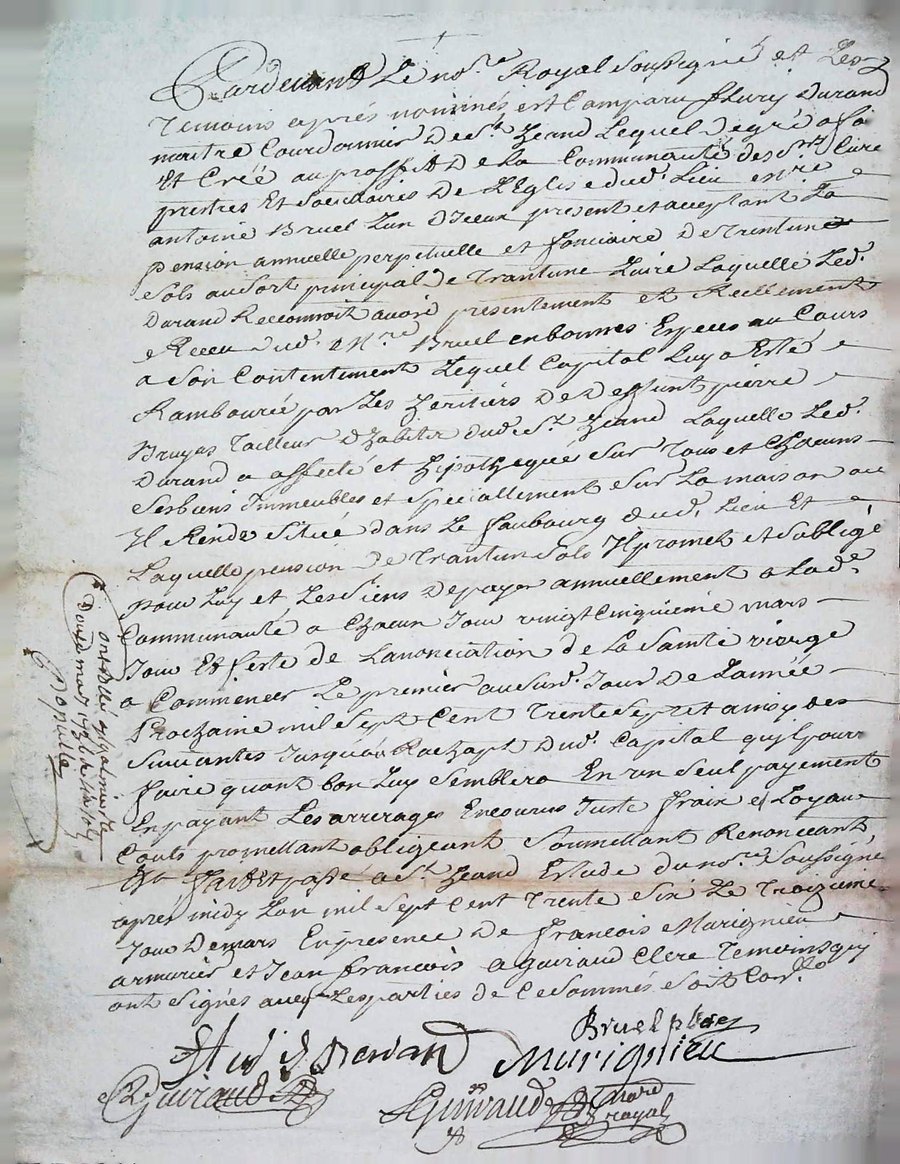 Pardevant Le no.re Royal Soussigné et Les
Temoins aprés nommés est Comparu fleury Durand
maitre Courdonnier de St. heand Lequel de gré a fa
Et Creé au proffit De La Communauté des Srs Curé
prestres Et Societaires De L'Eglise dud. Lieu
antoine Bruel L'un D'iceux present et acceptant La
pension annuelle perpetuelle et fonciaire De Trentune
Sols au Sort principal de Trantune Livre Laquelle Led.
Durand Reconnoit avoir presentement et Reellement
Receu dud. Mre Bruel en bonnes Especes au Cours
a Son Contentement Lequel Capital Luy a Esté
Rambourcé par Les heritiers De Deffunt pierre
Bruyas Tailleur D'habits dud. St. heand Laquelle Led.
Durand a affecté et hipothequé Sur Tous et Chacuns
Ses biens Immeubles et Speciallement Sur La maison ou
Il Reside Située dans Le faubourg dud. Lieu Et
Laquelle pension de Trantun Sols Il promet et S'obligé
pour Luy et Les Siens De payer annuellement a Lade.
Communauté a Chacun Jour vingt Cinquieme mars
Jour Et feste de Lanonciation de La Sainte vierge
a Commencer Le premier au Surd. Jour De L'année
Prochaine mil Sept Cent Trente Sept et ainsy des
Suivantes Jusqu'au Rachapt Dud. Capital qu'il pourra
faire quant bon Luy Semblera En un Seul payement
En payant Les arrerages Encourus Juste fraix et Loyaux
Couts promettant obligeant Soumettant Renonceant
fait et passé a St. heand Estude du no.re Soussigné
apres midy L'an mil Sept Cent Trente Six Le Troizieme
Jour De mars En presence De francois Murignieu
armurier et Jean francois aguiraud Clerc Temoins quy
ont Signés avec Les parties de Ce Sommés Soit Con.llo
Bruel ptre
Durand Murignieu
Guiraud
Guiraud
no.re royal